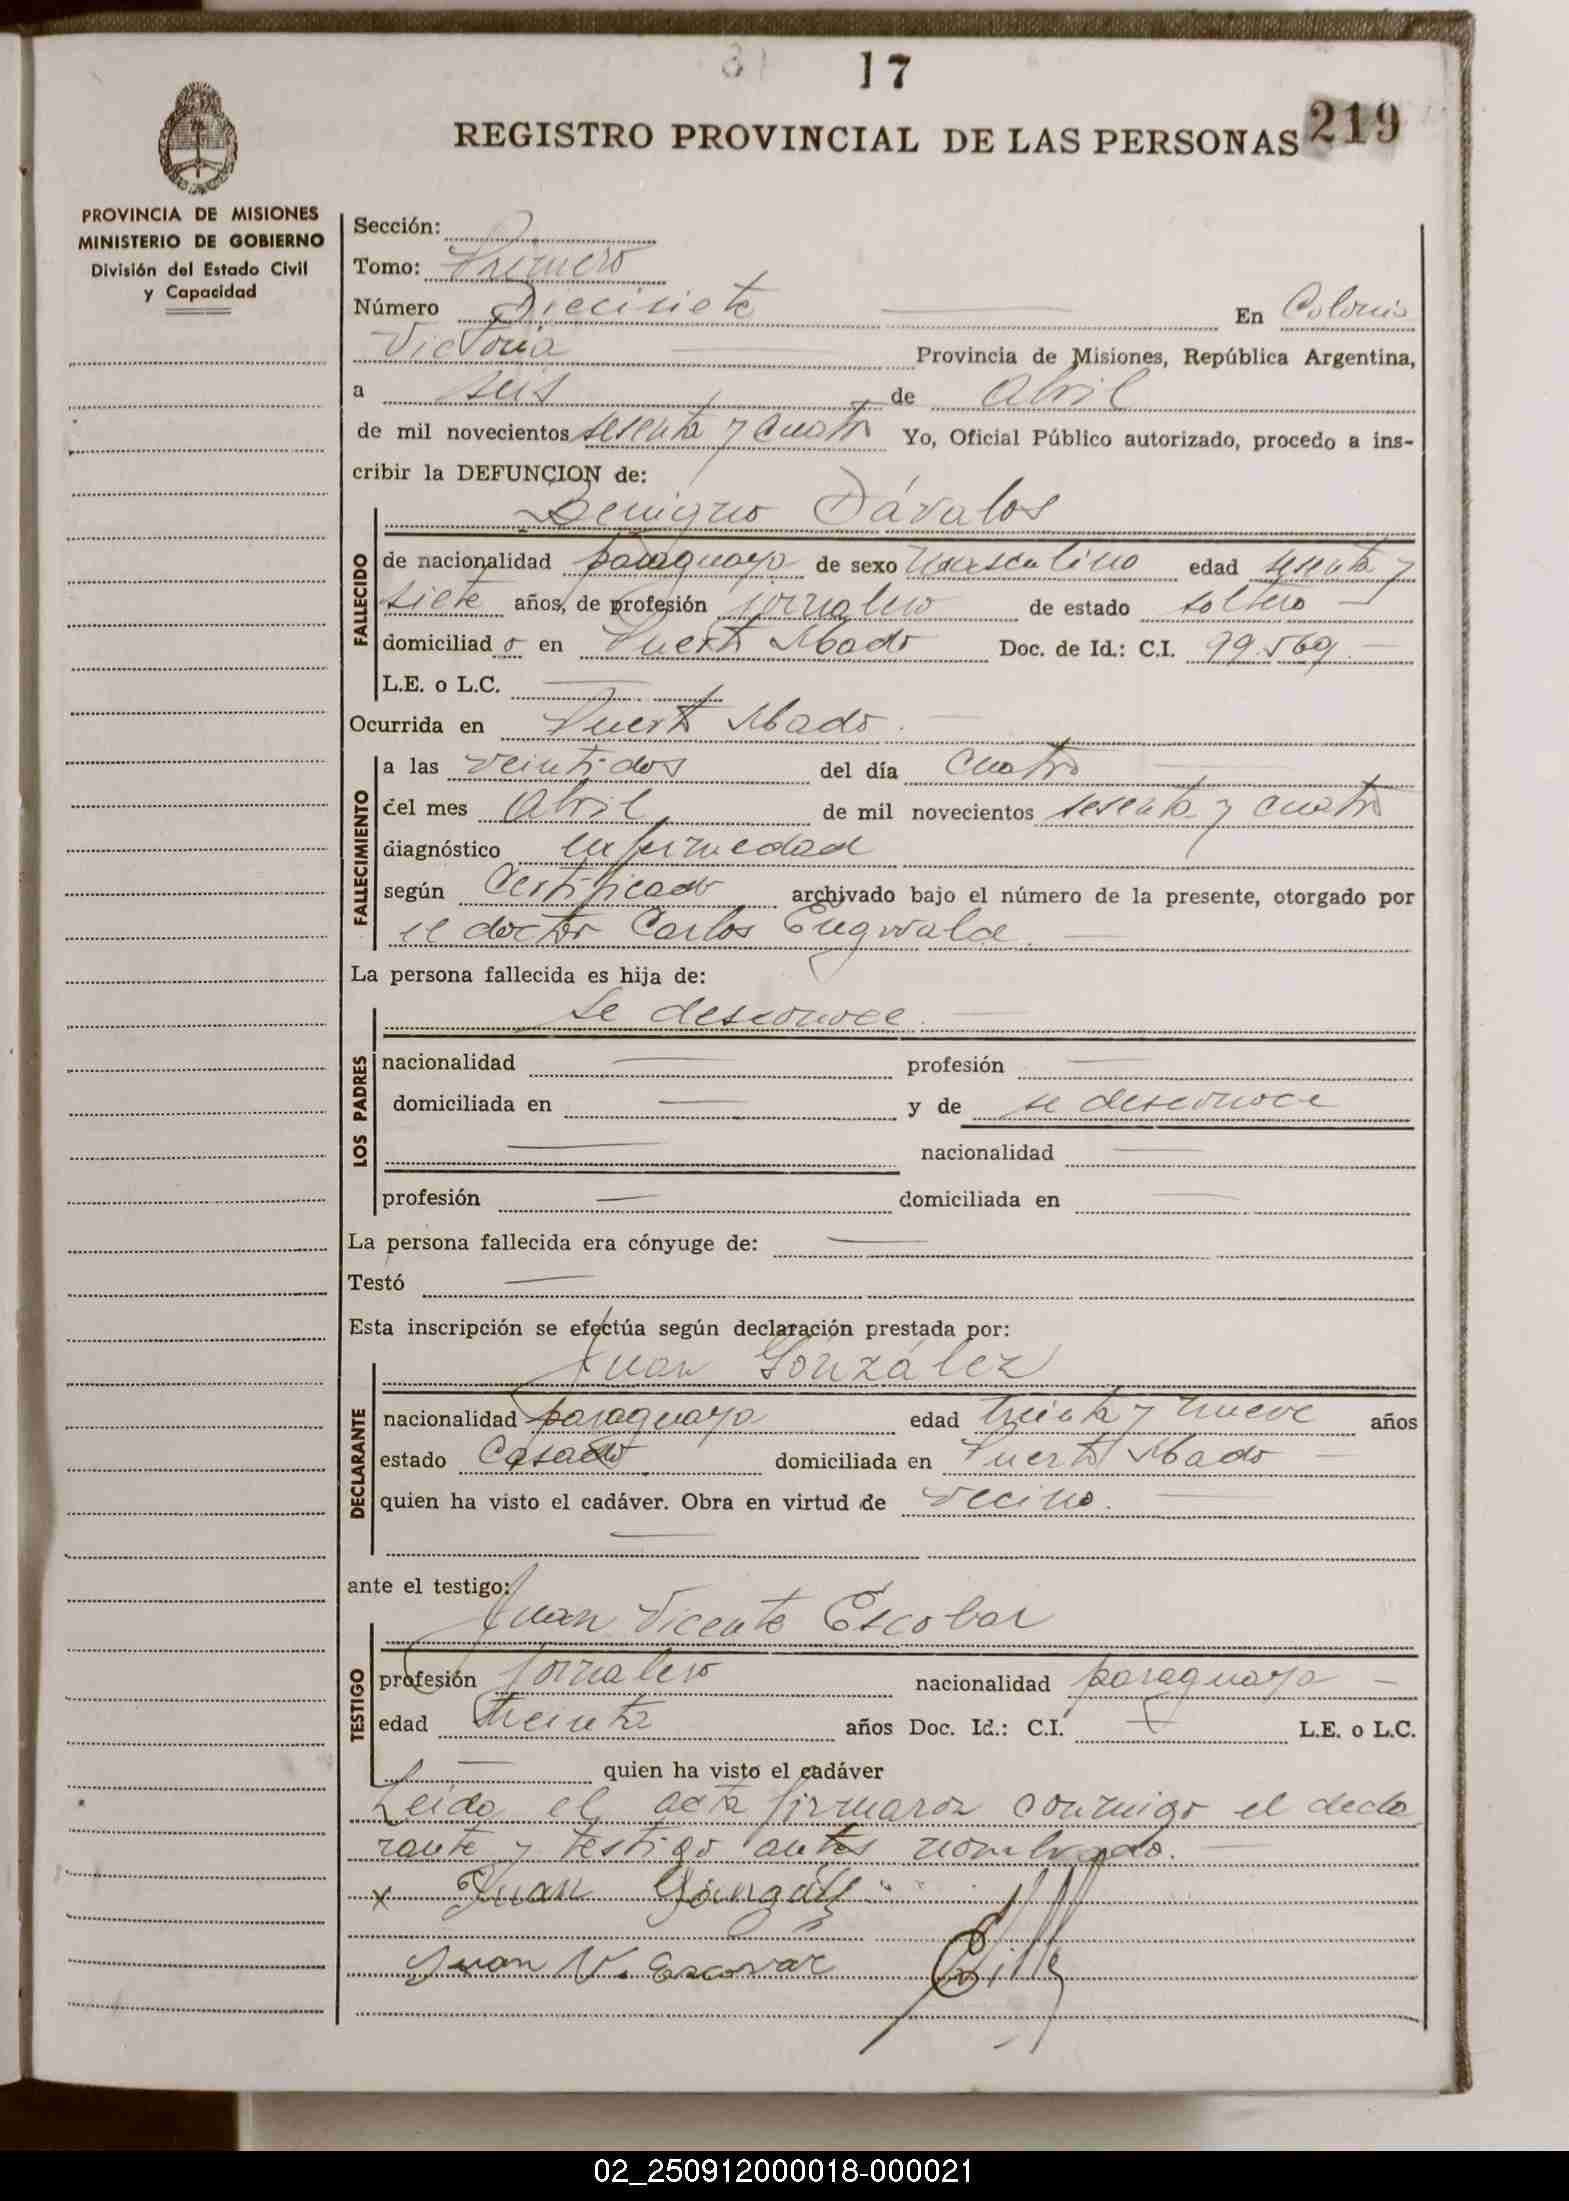 17
REGISTRO PROVINCIAL DE LAS PERSONAS 219
PROVINCIA DE MISIONES
MINISTERIO DE GOBIERNO
División del Estado Civil
y Capacidad
Sección:
Tomo: Primero
Número Diecisiete En Colonia
Victoria Provincia de Misiones, República Argentina,
a seis de Abril
de mil novecientos sesenta y cuatro Yo, Oficial Público autorizado, procedo a ins-
cribir la DEFUNCION de:
Benigno Dávalos
FALLECIDO
de nacionalidad paraguaya de sexo masculino edad sesenta y
siete años, de profesión jornalero de estado soltero
domiciliad o en Puerto Mado Doc. de Id.: C.I. 99.569
L.E. o L.C.
Ocurrida en Puerto Mado.
FALLECIMIENTO
a las veintidos del día cuatro
del mes Abril de mil novecientos sesenta y cuatro
diagnóstico enfermedad
según Certificado archivado bajo el número de la presente, otorgado por
el doctor Carlos
La persona fallecida es hija de:
se desconoce.
LOS PADRES
nacionalidad profesión
domiciliada en y de se desconoce
nacionalidad
profesión domiciliada en
La persona fallecida era cónyuge de:
Testó
Esta inscripción se efectúa según declaración prestada por:
Juan González
DECLARANTE
nacionalidad paraguaya edad treinta y nueve años
estado Casado domiciliada en Puerto Mado
quien ha visto el cadáver. Obra en virtud de vecino.
ante el testigo:
Juan Vicente Escobar
TESTIGO
profesión Jornalero nacionalidad paraguaya
edad treinta años Doc. Id.: C.I. L.E. o L.C.
quien ha visto el cadáver
Leida el acta firmaron conmigo el decla
rante y testigo antes nombrado.
x Juan Gonzáles
Juan V. Escovar
02_250912000018-000021